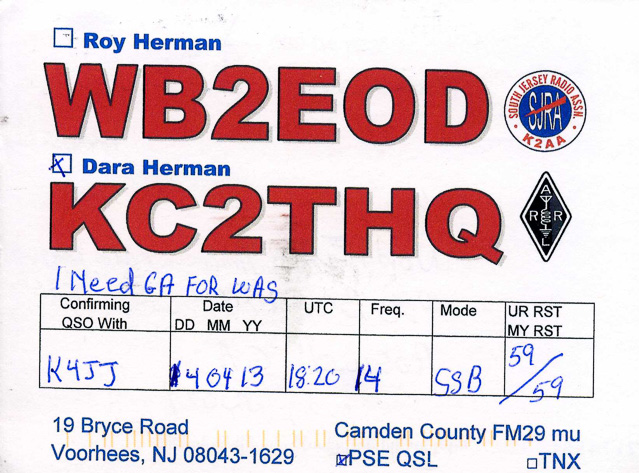 Roy Herman
WB2EOD
SOUTH JERSEY RADIO ASSN.
SJRA
K2AA
Dara Herman
KC2THQ
A
R R
L
I Need GA FOR WAS
Confirming QSO With
Date DD MM YY
UTC
Freq.
Mode
UR RST
MY RST
K4JJ
4 04 13
18:20
14
SSB
59/59
19 Bryce Road
Voorhees, NJ 08043-1629
Camden County FM29 mu
PSE QSL
TNX